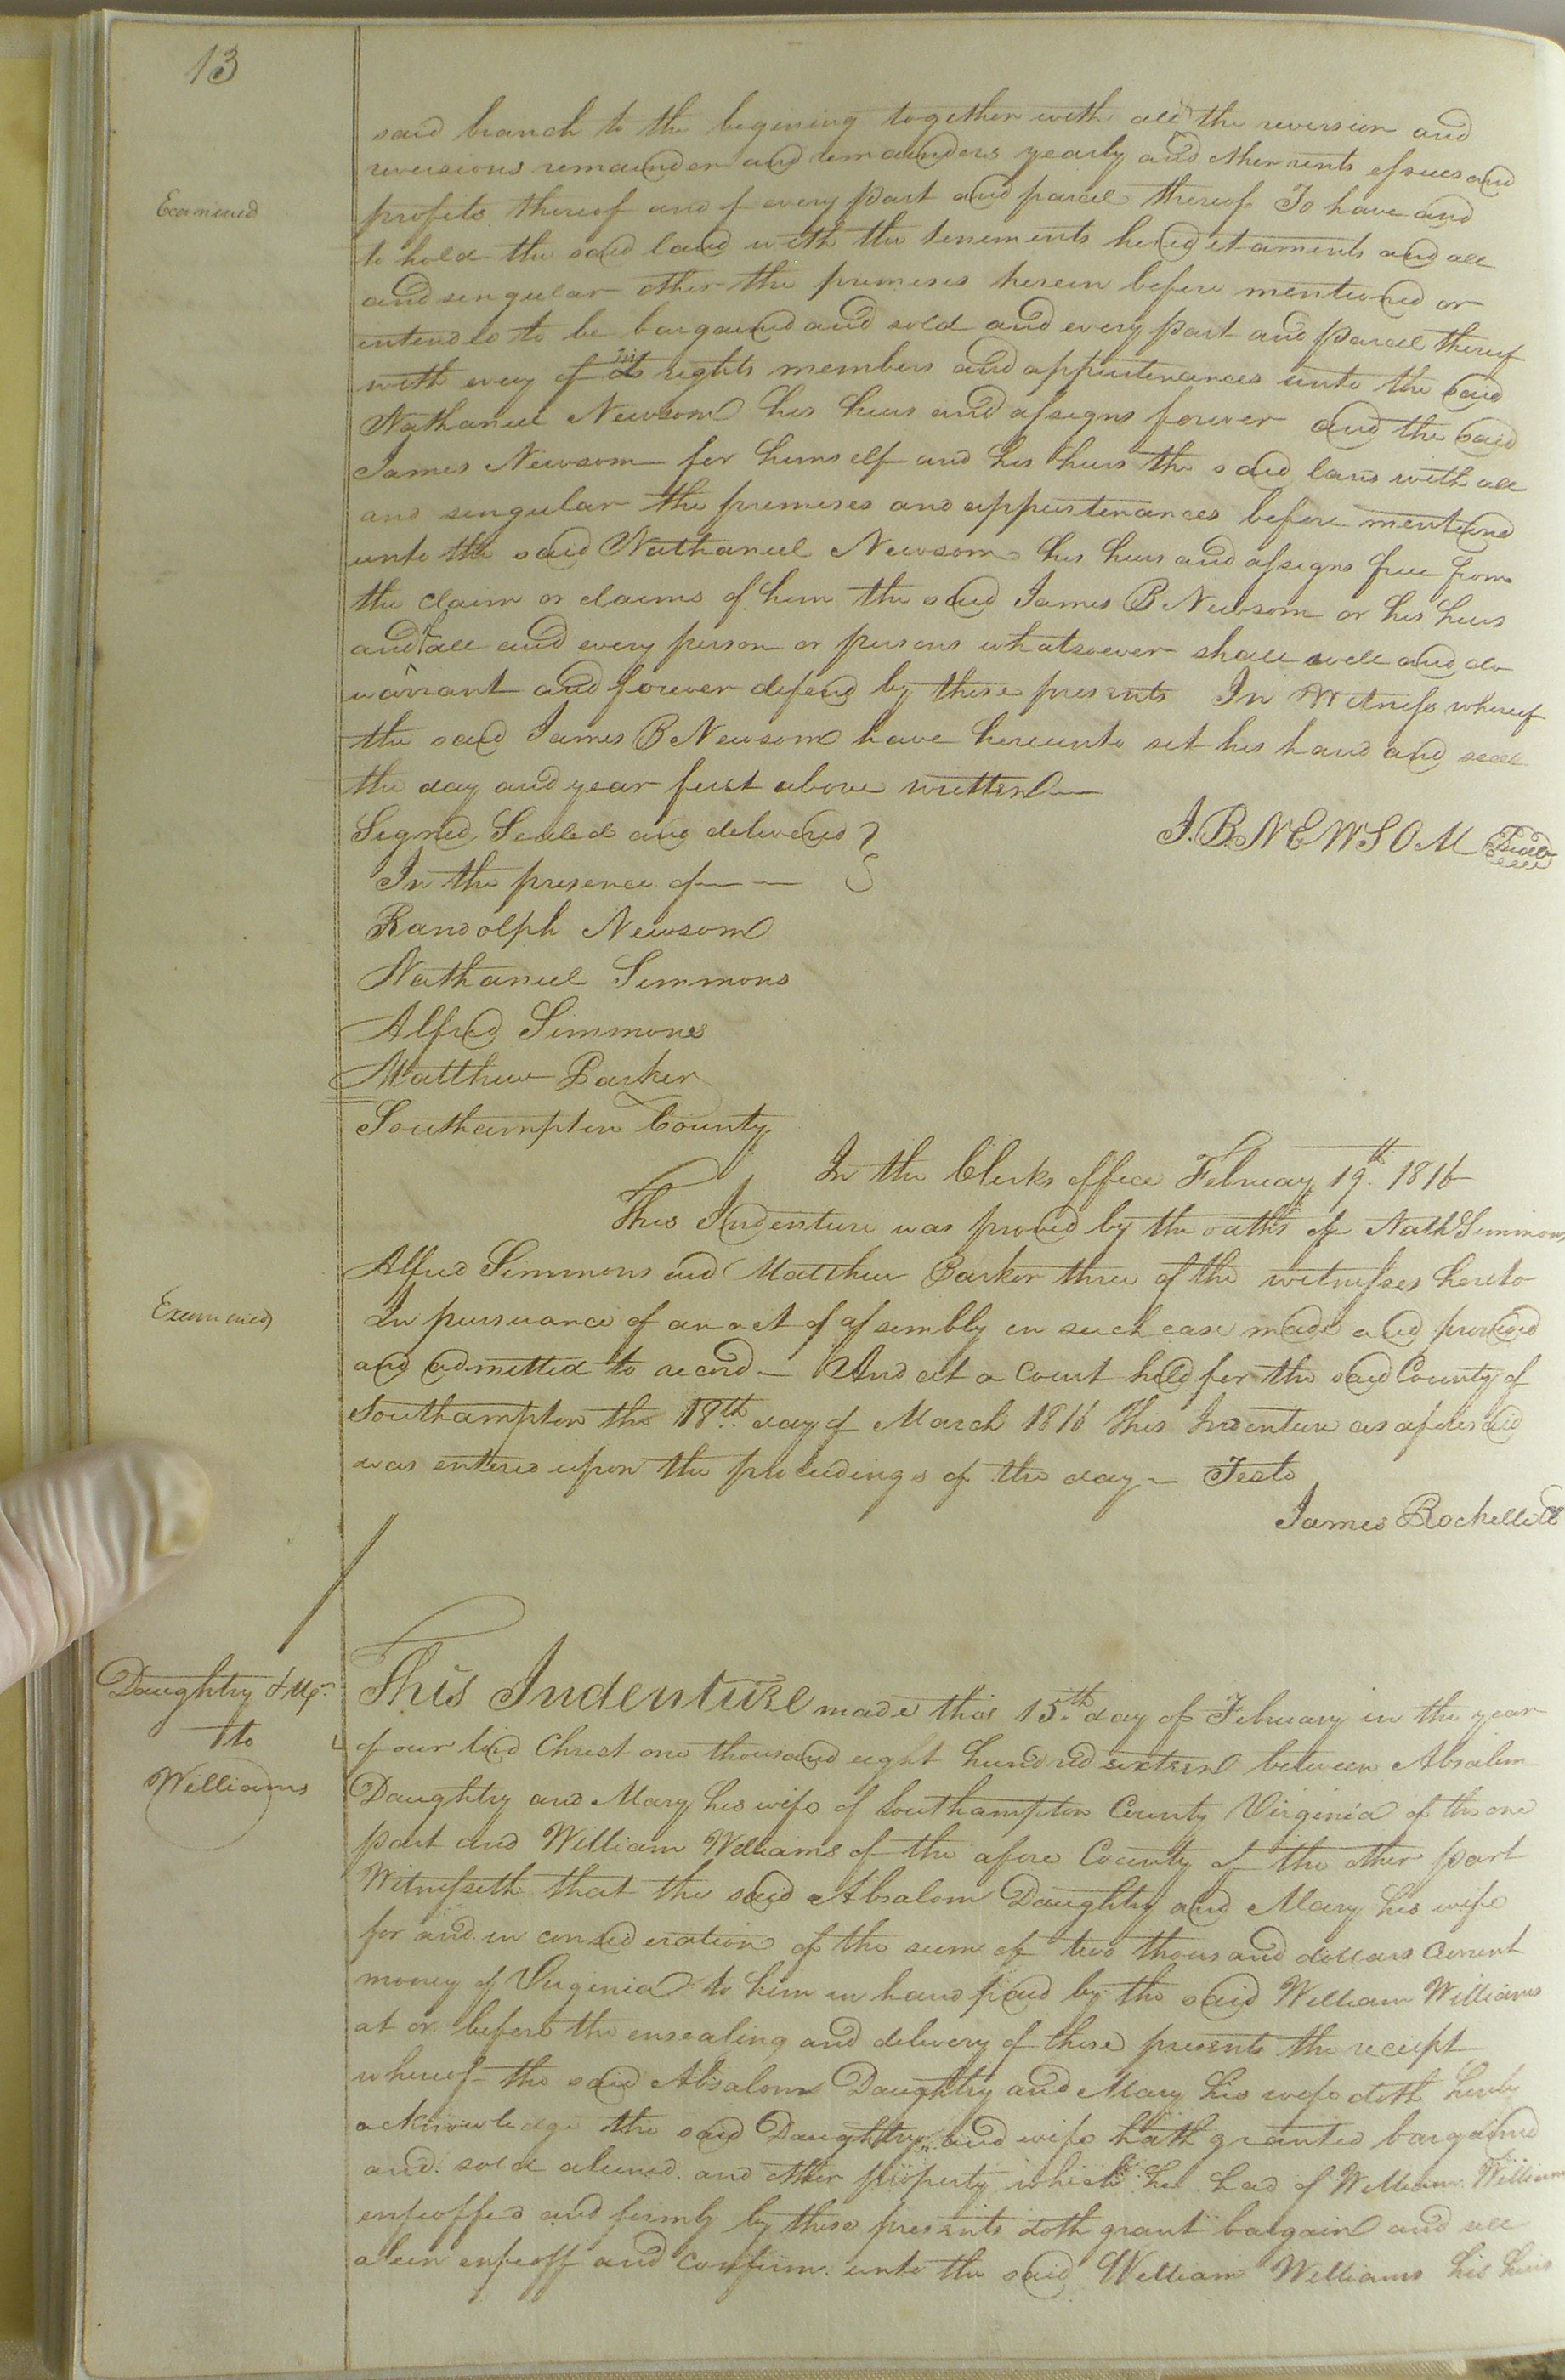 13
said branch to the begining together with all the reversion and
reversions remainder and remainders yearly and other rents essues and
Examined
profits thereof and of every part and parcel thereof To have and
to hold the said land with the tenements heriditaments and all
and singular other the premises herein before mentioned or
intended to be bargained and sold and every part and parcel thereof
with every of its rights members and appurtenances unto the said
Nathaniel Newsom his heirs and assigns forever and the said
James Newsom for himself and his heirs the said land with all
and singular the premises and appurtenances before mentiond
unto the said Nathaniel Newsom his heirs and assigns free from
the claim or claims of him the said James B Newsom or his heirs
and all and every person or persons whatsoever shall well and do
warrant and forever defend by these presents In Witness whereof
the said James B Newsom have hereunto set his hand and seal
the day and year first above written
Signed Sealed and delivered
J. B. NEWSOM Seal
In the presence of
Randolph Newsom
Nathaniel Simmons
Alfred Simmons
Matthew Barker
Southampton County
In the Clerks office February 19th 1816
This Indenture was proved by the oaths of Nathl Simmons
Alfred Simmons and Matthew Barker three of the witnesses hereto
Examined
In pursuance of an act of assembly in such case made and provided
and admitted to record — And at a Court held for the said County of
Southampton the 18th day of March 1816 This Indenture as aforesaid
was entered upon the proceedings of the day — Teste
James Rochelle Cl
Daughtry & Ux
to
Williams
This Indenture made this 15th day of February in the year
of our lord Christ one thousand eight hundred sixteen between Absalom
Daughtry and Mary his wife of Southampton County Virginia of the one
part and William Williams of the afore County of the other part
Witnesseth that the said Absalom Daughtry and Mary his wife
for and in consideration of the sum of two thousand dollars Current
money of Virginia to him in hand paid by the said William Williams
at or before the ensealing and delivery of these presents the receipt
whereof the said Absalom Daughtry and Mary his wife doth hereby
acknowledge the said Daughtry and wife hath granted bargained
and sold aliened and other property which he had of William Williams
enfeoffed and firmly by these presents doth grant bargain and sell
alien enfeoff and confirm unto the said William Williams his heirs